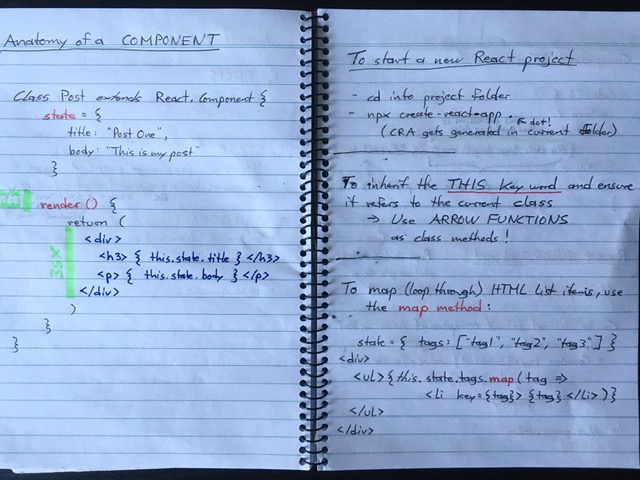 Anatomy of a COMPONENT
Class Post extends React.Component {
state = {
title: "Post One",
body: "This is my post"
}
render() {
return (
<div>
<h3> { this.state.title } </h3>
<p> { this.state.body } </p>
</div>
)
}
}
JSX
To start a new React project
- cd into project folder
- npx create-react-app .
↖ dot!
(CRA gets generated in current folder)
To inherit the THIS Key word and ensure
it refers to the current class
→ Use ARROW FUNCTIONS
as class methods!
To map (loop through) HTML List items, use
the map method:
state = { tags: ["tag1", "tag2", "tag3"] }
<div>
<ul>{this.state.tags.map(tag =>
<li key={tag}> {tag} </li>)}
</ul>
</div>